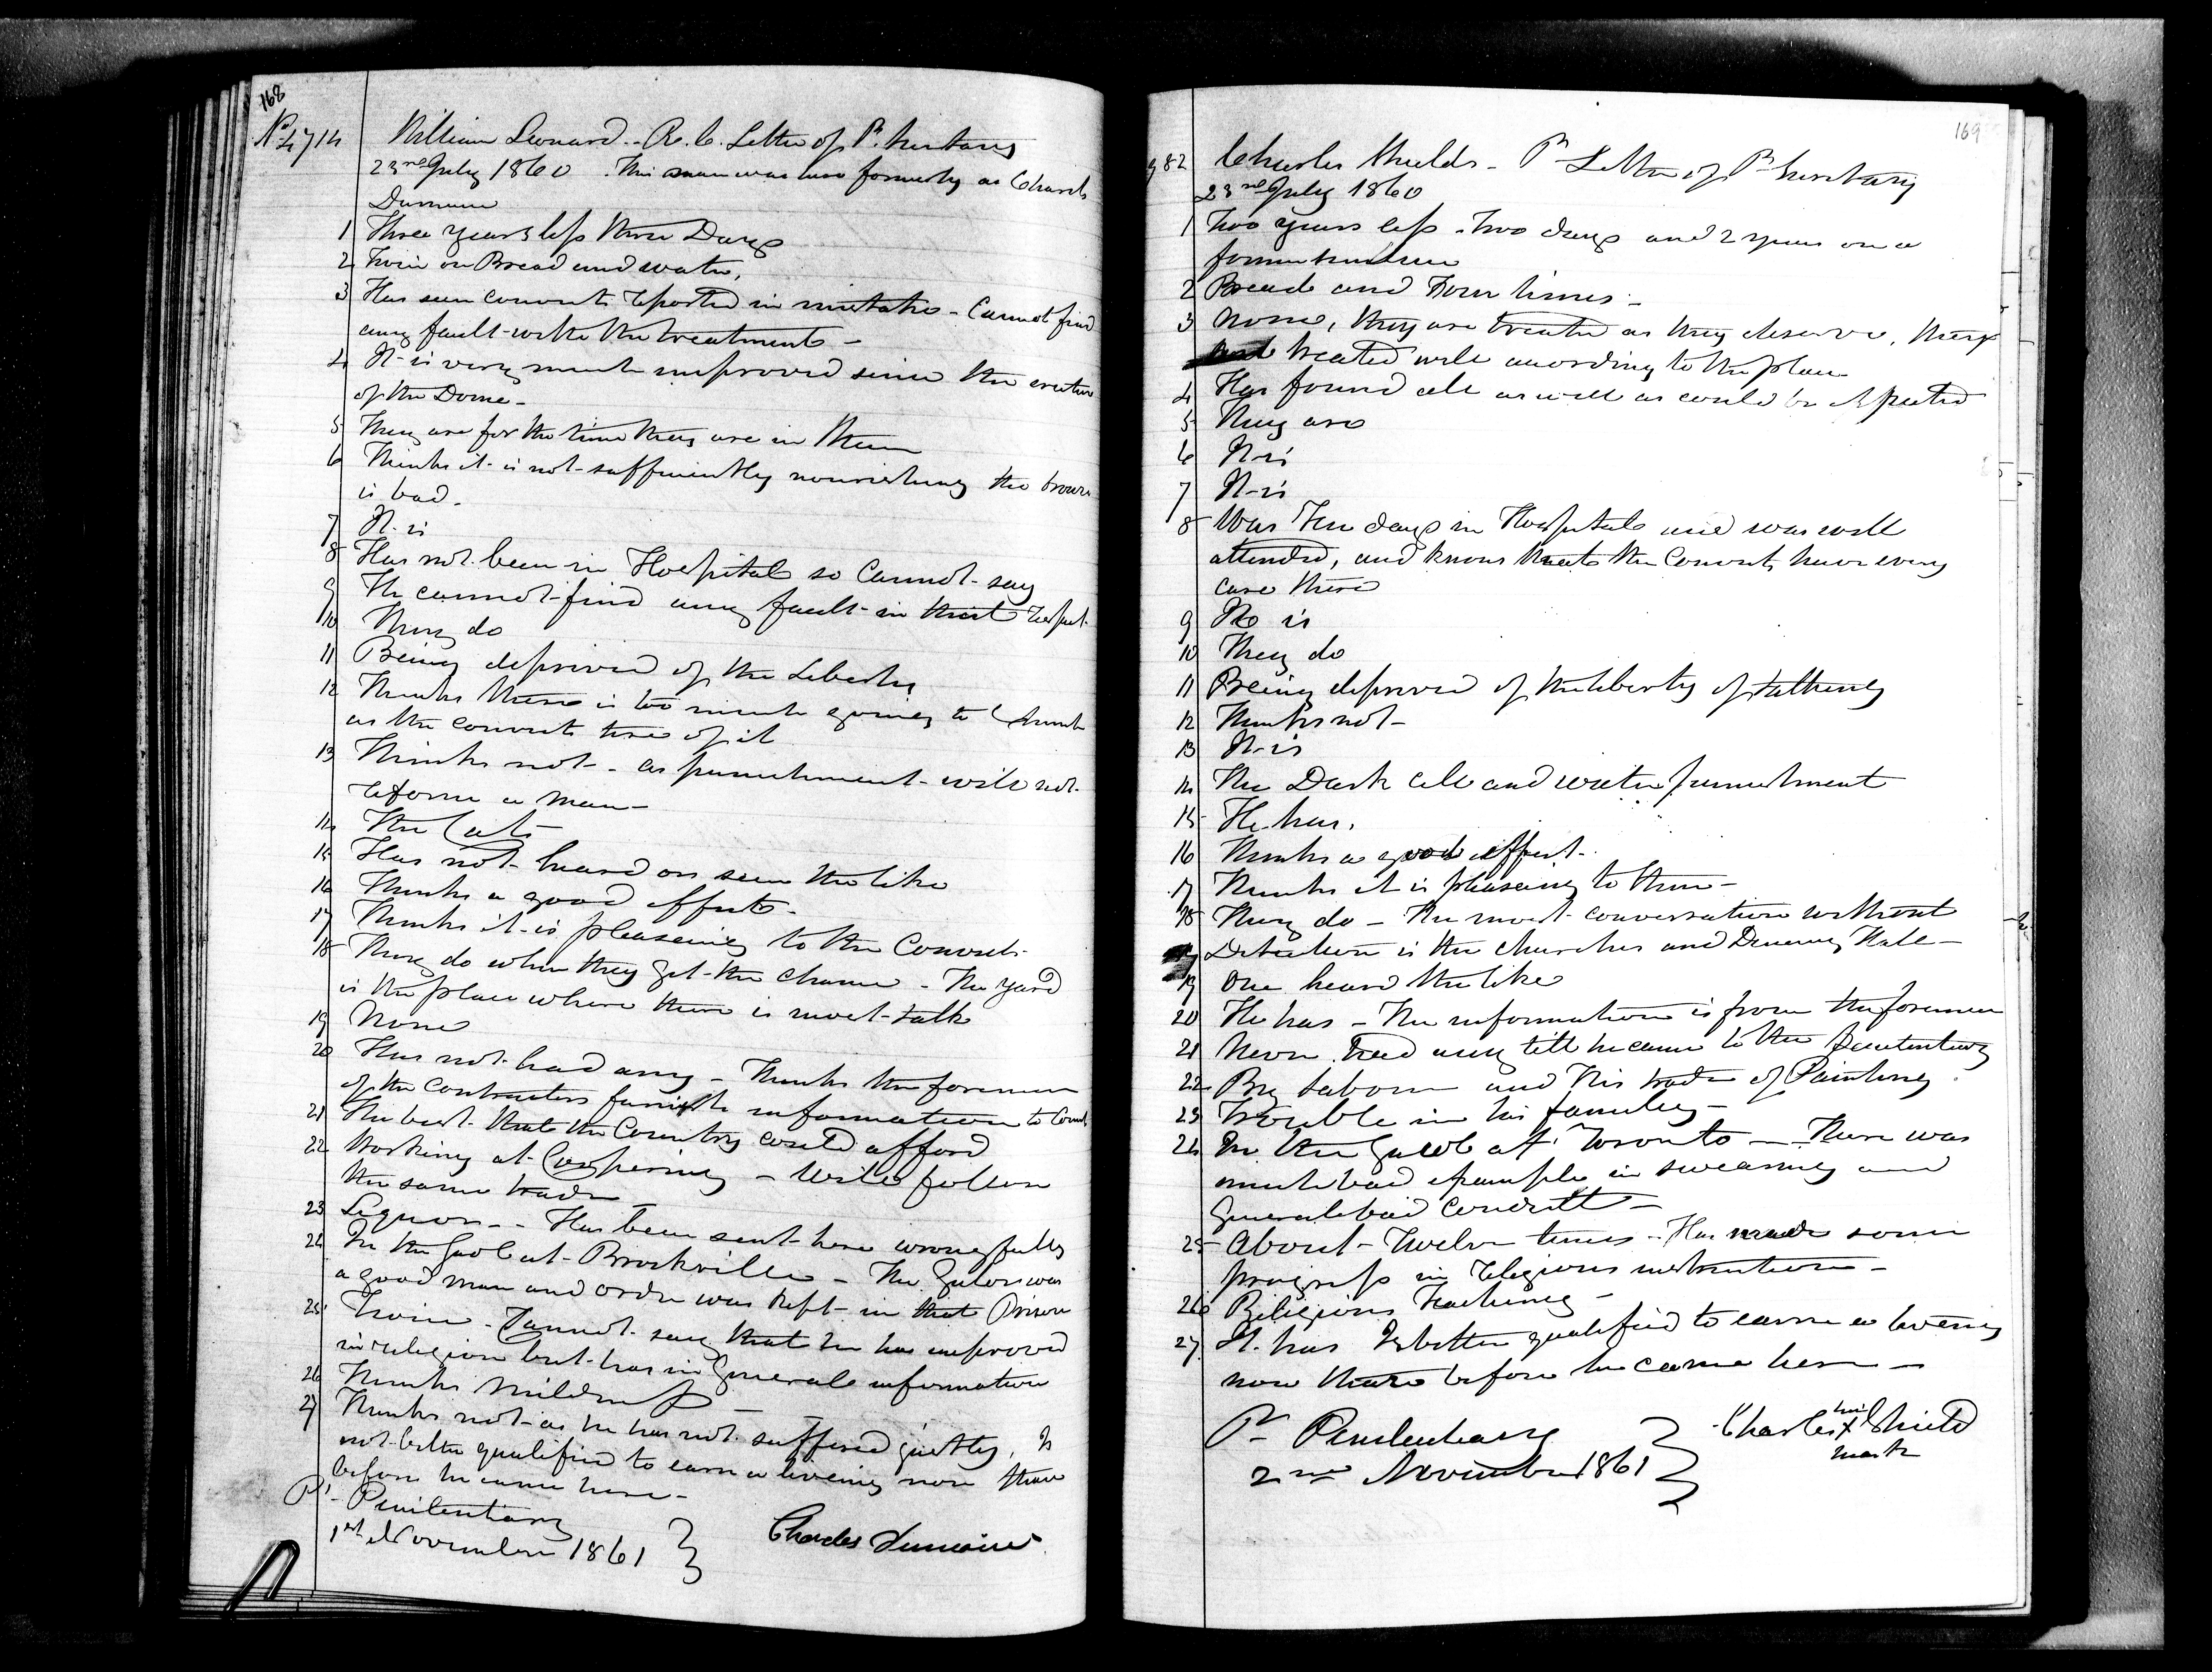 168
No 4714 William Leonard - R.C. Letter of P. Secretary
23rd July 1860. This man was here formerly as Charles
1 Three years less three Days
2 Twice on Bread and water,
3 Has seen convicts reported in mistake - Cannot find
any fault with the treatment -
4 It is very much improved since the erection
of the Dome -
5 They are for the time they are in them
6 Thinks it is not sufficiently nourishing the brown
is bad -
7 It is
8 Has not been in Hospital so Cannot say
9 He cannot find any fault in that respect
10 They do
11 Being deprived of the Liberty
12 Thinks there is too much going to Church
as the convicts tire of it
13 Thinks not - as punishment will not
reform a man -
14 The Cats
15 Has not heard or seen the like
16 Thinks a good effect -
17 Thinks it is pleaseing to the Convicts -
18 They do when they get the chance - The yard
is the place where there is most talk
19 None
20 Has not had any - Thinks the foremen
of the Contractors furnish information to Convts
21 The best that the Country could afford
22 Working at Coopering - Will follow
the same trade
23 Liquor - - Has been sent here wrongfully
24 In the Gaol at Brockville - The Gaoler was
a good man and order was kept in that Prison
25 Twice - Cannot say that he has improved
in religion but has in General information
26 Thinks Mildness -
27 Thinks not as he has not suffered justly, Is
not better qualified to earn a liveing now than
before he came here -
Pl Penitentiary
1st November 1861 Charles
169
982 Charles Shields - P Letter of P Secretary
23rd July 1860
1 Two years less two days and 2 years on a
former
2 Bread and Four times -
3 None, they are treated as they deserve, they
treated well according to the place
4 Has found all as well as could be expected
5 They are
6 It is
7 It is
8 Was Ten days in Hospital and was well
attended, and knows that the Convicts have every
care there
9 He is
10 They do
11 Being deprived of the liberty of talking
12 Thinks not -
13 It is
14 The Dark cell and water punishment
15 He has.
16 Thinks a good effect -
17 Thinks it is pleaseing to them -
18 They do - The most conversation without
Detection is the Churches and Dineing Hall -
19 One heard the like
20 He has - The information is from the foremen
21 Never had any till he came to the Penitentiary
22 By Labour and His trade of Painting
23 Trouble in his family -
24 In the Gaol at Toronto - There was
much bad example in swearing and
General bad conduct -
25 About Twelve times - Has made some
progress in religious instruction -
26 Religious Teaching -
27 It has Is better qualified to earn a liveing
now than before he came here -
Pl Penitentiary his
2nd November 1861 Charles X Shield
mark